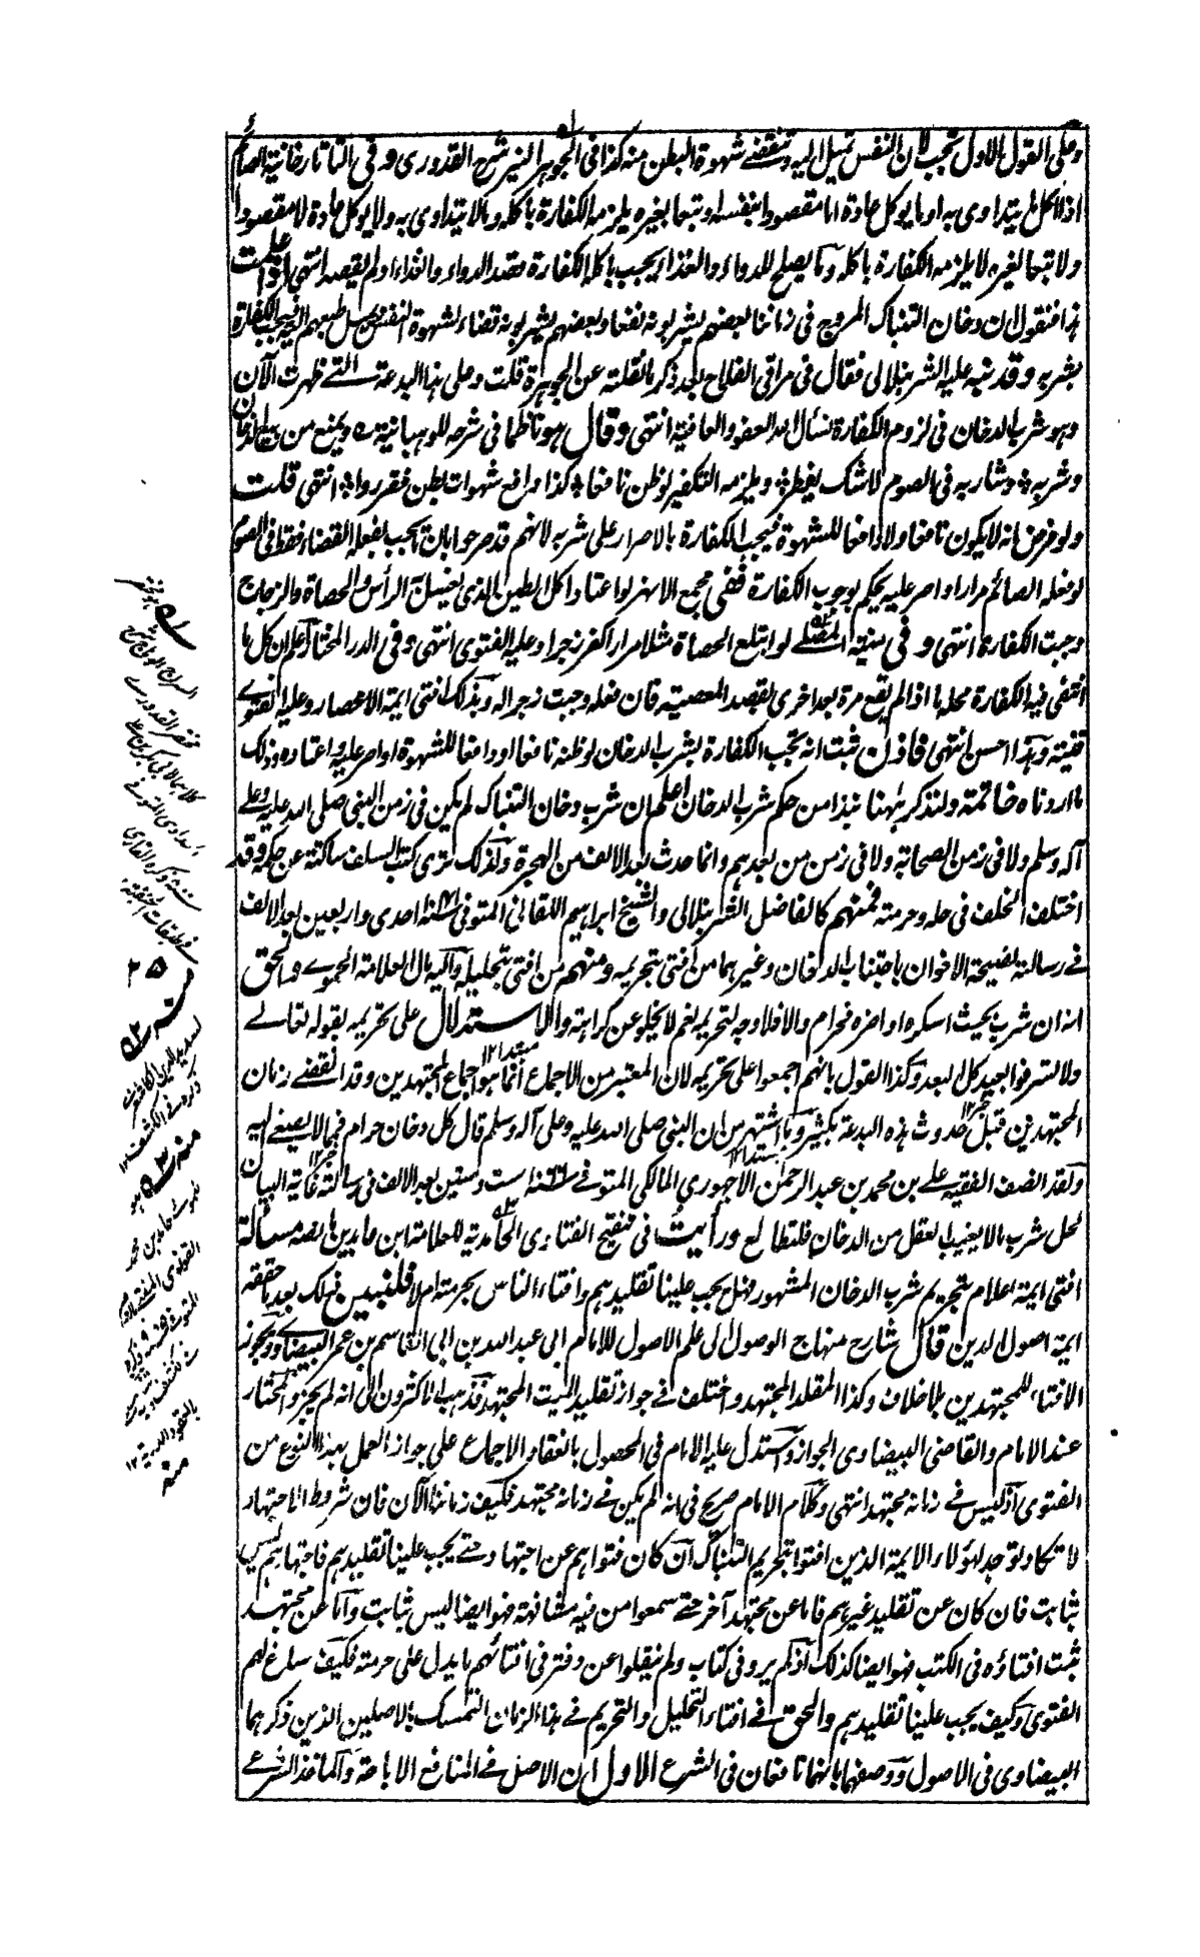 وعلى القول الاول تجب لان النفس تميل اليه وتنقضے شهوة البطن منه كذا فى الجوهر النير شرح القدورى وفى التاتارخانية الصائم
اذا اكل ما يتداوى به او ما يوكل عادة اما مقصودا بنفسه او تبعا لغيره يلزمه الكفارة باكله وما لا يتداوى به ولا يوكل عادة لا مقصودا
ولا تبعا لغيره لا يلزمه الكفارة باكله وما يصلح للدواء والغذاء يجب باكله الكفارة قصد الدواء والغذاء او لم يقصد انتهى اذا علمت
هذا فنقول ان دخان التنباك المروج فى زماننا بعضهم يشربونه نفعا وبعضهم يشربونه قضاء لشهوة النفس طبعهم اليه فيجب الكفارة
بشربه وقد نبه عليه الشرنبلالى فقال فى مراقى الفلاح بعد ذكر ما نقلته عن الجوهرة قلت وعلى هذا البدعة التے ظهرت الآن
وهو شرب الدخان فى لزوم الكفارة نسأل الله العفو والعافية انتهى وقال هو ناظما فى شرحه للوهبانية ويمنع من بيع الدخان
وشربه ٭ وشاربه فى الصوم لا شك يفطر ٭ ويلزمه التكفير لو ظن نافعا ٭ كذا دافع شهوات بطن فقرروا ٭ انتهى قلت
ولو فرض انه لا يكون نافعا ولا دافعا للشهوة فيجب الكفارة بالاصرار على شربه لانهم قد صرحوا بان ما يجب بفعله القضاء فقط فى الصوم
لو فعله الصائم مرارا واصر عليه يحكم بوجوب الكفارة ففى مجمع الانهر لو اعتاد اكل الطين الذى يغسل به الرأس والحصاة والزجاج
وجبت الكفارة انتهى وفى منية المصلے لو ابتلع الحصاة مثلا مرارا كفر زجرا وعليه الفتوى انتهى وفى الدر المختار واعلم ان كل ما
انتفى فيه الكفارة محله ما اذا لم يقع مرة بعد اخرى لقصد المعصية فان فعله وجبت زجرا له وبذلك افتى ايمة الاعصار وعليه الفتوے
قنية وهذا حسن انتهى فاذن ثبت انه تجب الكفارة بشرب الدخان لو ظنه نافعا او دافعا للشهوة او اصر عليه واعتاده وذلك
ما اردناه خاتمة ولنذكر ههنا نبذا من حكم شرب الدخان اعلم ان شرب دخان التنباك لم يكن فى زمن النبى صلى الله عليه وعلى
آله وسلم ولا فى زمن الصحابة ولا فى زمن من بعدهم وانما حدث بعد الالف من الهجرة ولذلك ترى كتب السلف ساكتة عن حكمه وقد
اختلف الخلف فى حله وحرمته فمنهم كالفاضل الشرنبلالى والشيخ ابراهيم اللقانى المتوفى سنة احدى واربعين بعد الالف
فے رسالته نصيحة الاخوان باجتناب الدخان وغيرهما من افتى بتحريمه ومنهم من افتى بتحليله واليه مال العلامة الحموے والحق
انه ان شرب بحيث اسكره او اضره فحرام والا فلا وجه لتحريمه نعم لا يخلو عن كراهة والاستدلال على تحريمه بقوله تعالے
ولا تسرفوا بعيد كل البعد وكذا القول بانهم اجمعوا على تحريمه لان المعتبر من الاجماع انما هو اجماع المجتهدين وقد انقضے زمان
المجتهدين قبل حدوث هذه البدعة بكثير وما اشتهر من ان النبى صلى الله عليه وعلى آله وسلم قال كل دخان حرام فمما لا يصغے اليه
ولقد انصف الفقيه علے بن محمد بن عبد الرحمن الاجهورى المالكى المتوفے سنة ست وستين بعد الالف فى رسالته غاية البيان
لحل شرب ما لا يغيب العقل من الدخان فلتطالع ورأيت فى تنقيح الفتاوى الحامدية للعلامة ابن عابدين ما نصه مسألة
افتى ايمة اعلام بتحريم شرب الدخان المشهور فهل يجب علينا تقليدهم وافتاء الناس بحرمته ام لا فلنبين ذلك بعد ما حققه
ايمة اصول الدين قال شارح منهاج الوصول الى علم الاصول للامام ابى عبد الله بن ابى القاسم بن عمر البيضاوے ويجوز
الافتاء للمجتهدين بلا خلاف وكذا المقلد المجتهد واختلف فے جواز تقليد الميت المجتهد فذهب الاكثرون الى انه لم يجز والمختار
عند الامام والقاضى البيضاوى الجواز واستدل عليه الامام فى المحصول بانعقاد الاجماع على جواز العمل بهذا النوع من
الفتوى اذ ليس فے زمانه مجتهد انتهى وكلام الامام صريح فى انه لم يكن فے زمانه مجتهد فكيف زماننا الآن فان شروط الاجتهاد
لا تكاد توجد فهؤلاء الايمة الذين افتوا بتحريم التنباك ان كان فتواهم عن اجتهاد حتے يجب علينا تقليدهم فاجتهادهم ليس
بثابت فان كان عن تقليد غيرهم فاما عن مجتهد آخر حتے سمعوا من فيه مشافهة فهو ايضا ليس بثابت واما عن مجتهد
ثبت افتاؤه فى الكتب فهو ايضا كذلك اذ لم يروا فى كتاب ولم ينقلوا عن دفتر فى افتائهم ما يدل على حرمته فكيف ساغ لهم
الفتوى وكيف يجب علينا تقليدهم والحق فے افتاء التحليل والتحريم فے هذا الزمان التمسك بالاصلين الذين ذكرهما
البيضاوى فى الاصول ووصفهما بانهما نافعان فى الشرع الاول ان الاصل فے المنافع الاباحة والماخذ الشرعے
هو مختصر
السراج الوهاج شرح
مختصر القدورے
كلاهما لابى بكر بن علے
الحدادى المتوفے
سنة ذكره القارى
فے طبقات الحنفية
منه
ذكره فے الكشف ١٢
منه
منه